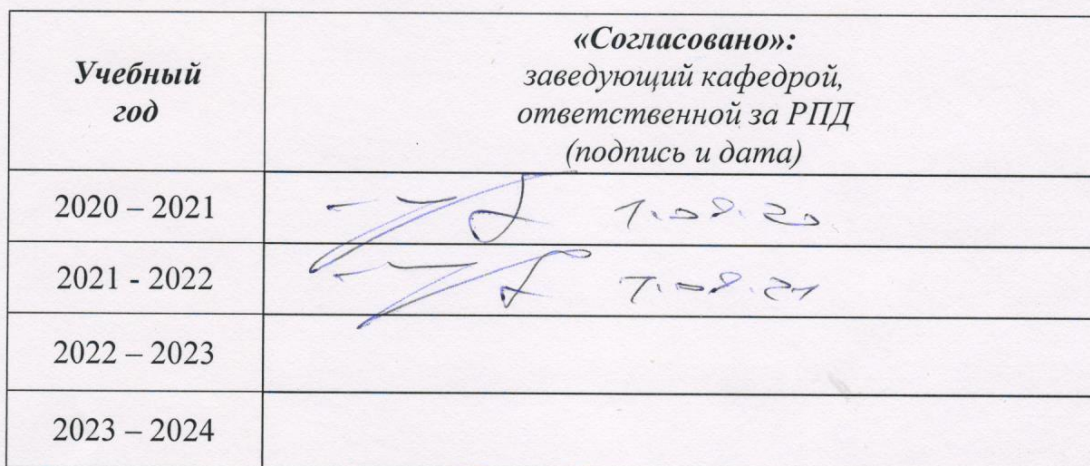 Учебный
год
«Согласовано»:
заведующий кафедрой,
ответственной за РПД
(подпись и дата)
2020 – 2021
2021 - 2022
2022 – 2023
2023 – 2024